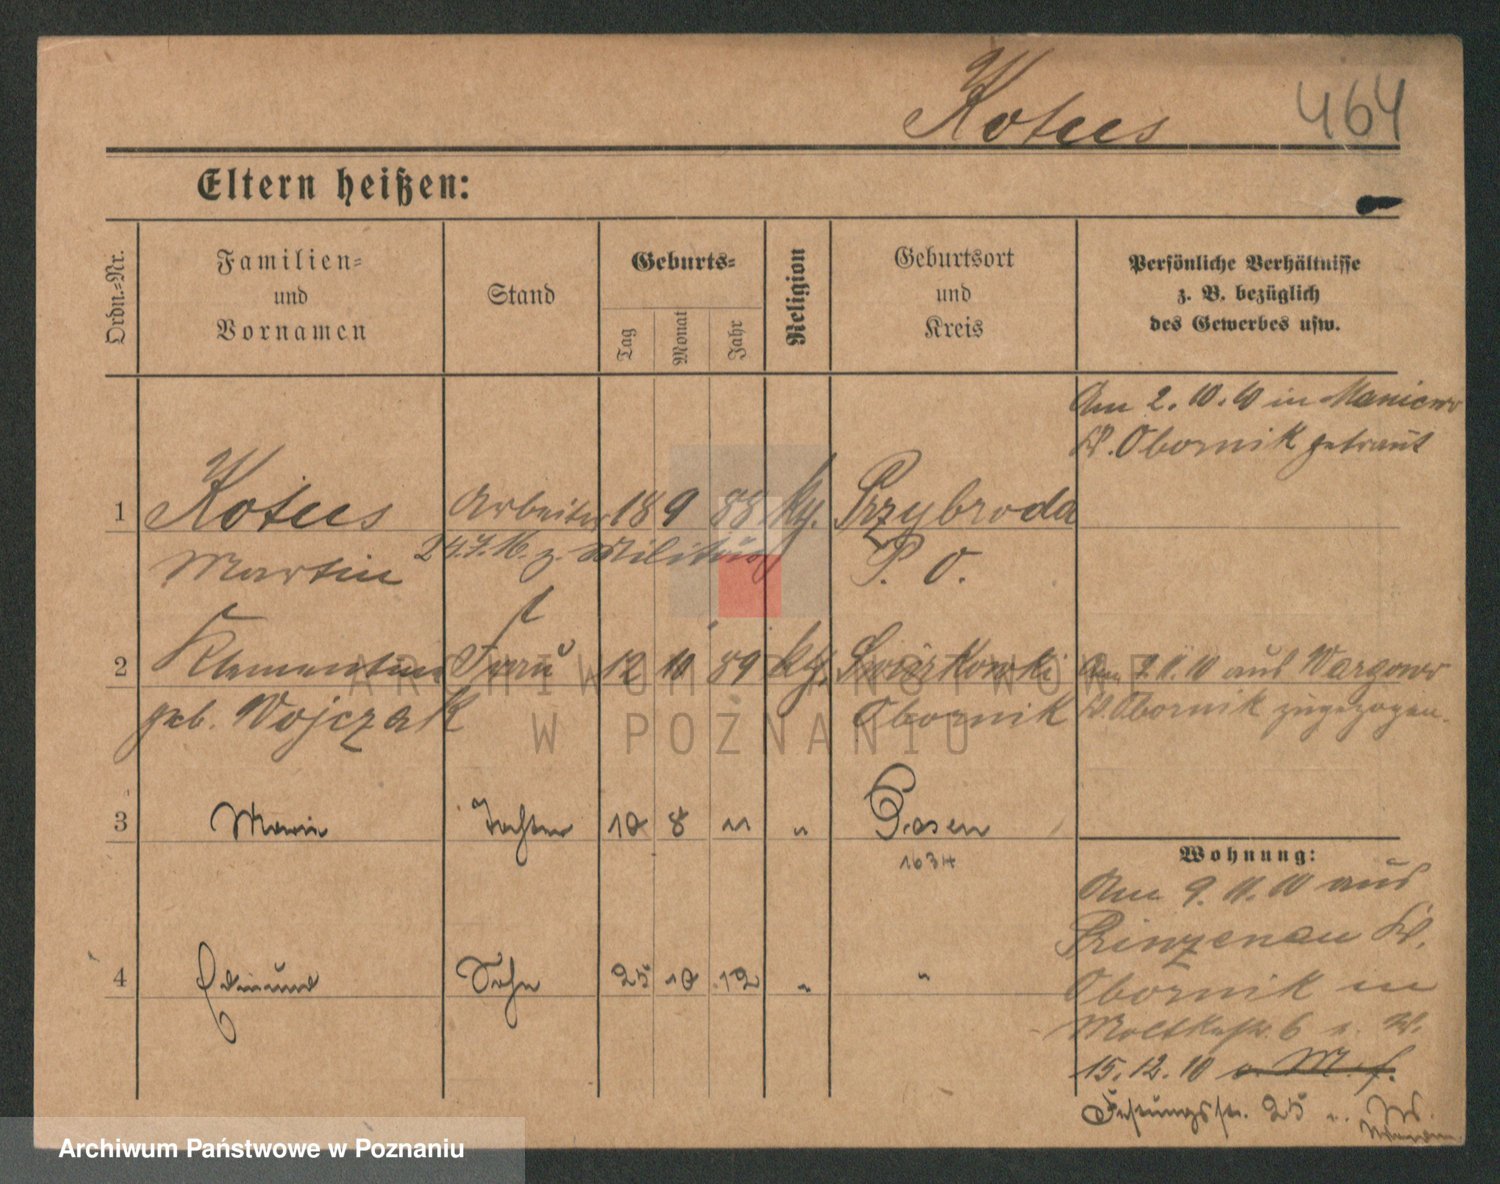 Kotus 464
Eltern heißen:
Ordn.-Nr.
Familien-
und
Vornamen
Stand
Geburts-
Tag
Monat
Jahr
Religion
Geburtsort
und
Kreis
Persönliche Verhältnisse
z. B. bezüglich
des Gewerbes usw.
Am 2. 10. 10 in Maniewo
Kr. Obornik getraut
1 Kotus Arbeiter 18 9 88 kg. Przybroda
Martin 24.7.16. z. Militär P. O.
2 Klementine Frau 12 10 89 kg. Swierkowki Am 9.11.10 aus Wargowo
geb. Wojczak Obornik Kr. Obornik zugezogen.
3 Maria Tochter 10 8 11 " Posen
1634
Wohnung:
Am 9. 11. 10 aus
Prinzenau Kr.
4 Edmund Sohn 25 10 12 " "
Obornik in
Moltkestr. 6
15. 12. 10
Festungsstr. 25
ARCHIWUM PAŃSTWOWE
W POZNANIU
Archiwum Państwowe w Poznaniu